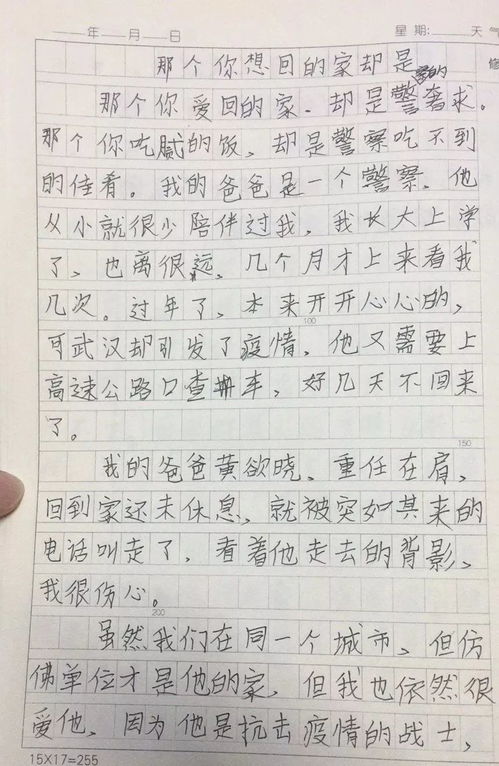 年 月 日 星期: 天气
那个你想回的家却是 修
那个你爱回的家、却是警察的奢求。
那个你吃腻的饭、却是警察吃不到
的佳肴。我的爸爸是一个警察、他
从小就很少陪伴过我、我长大上学
了、也离很远、几个月才上来看我
几次。过年了、本来开开心心的、
可武汉却引发了疫情、他又需要上
100
高速公路口查车、好几天不回来
了。
150
我的爸爸黄欲晓、重任在肩、
回到家还未休息、就被突如其来的
电话叫走了、看着他走去的背影、
我很伤心。
200
虽然我们在同一个城市、但仿
佛单位才是他的家、但我也依然很
爱他、因为他是抗击疫情的战士、
15X17=255